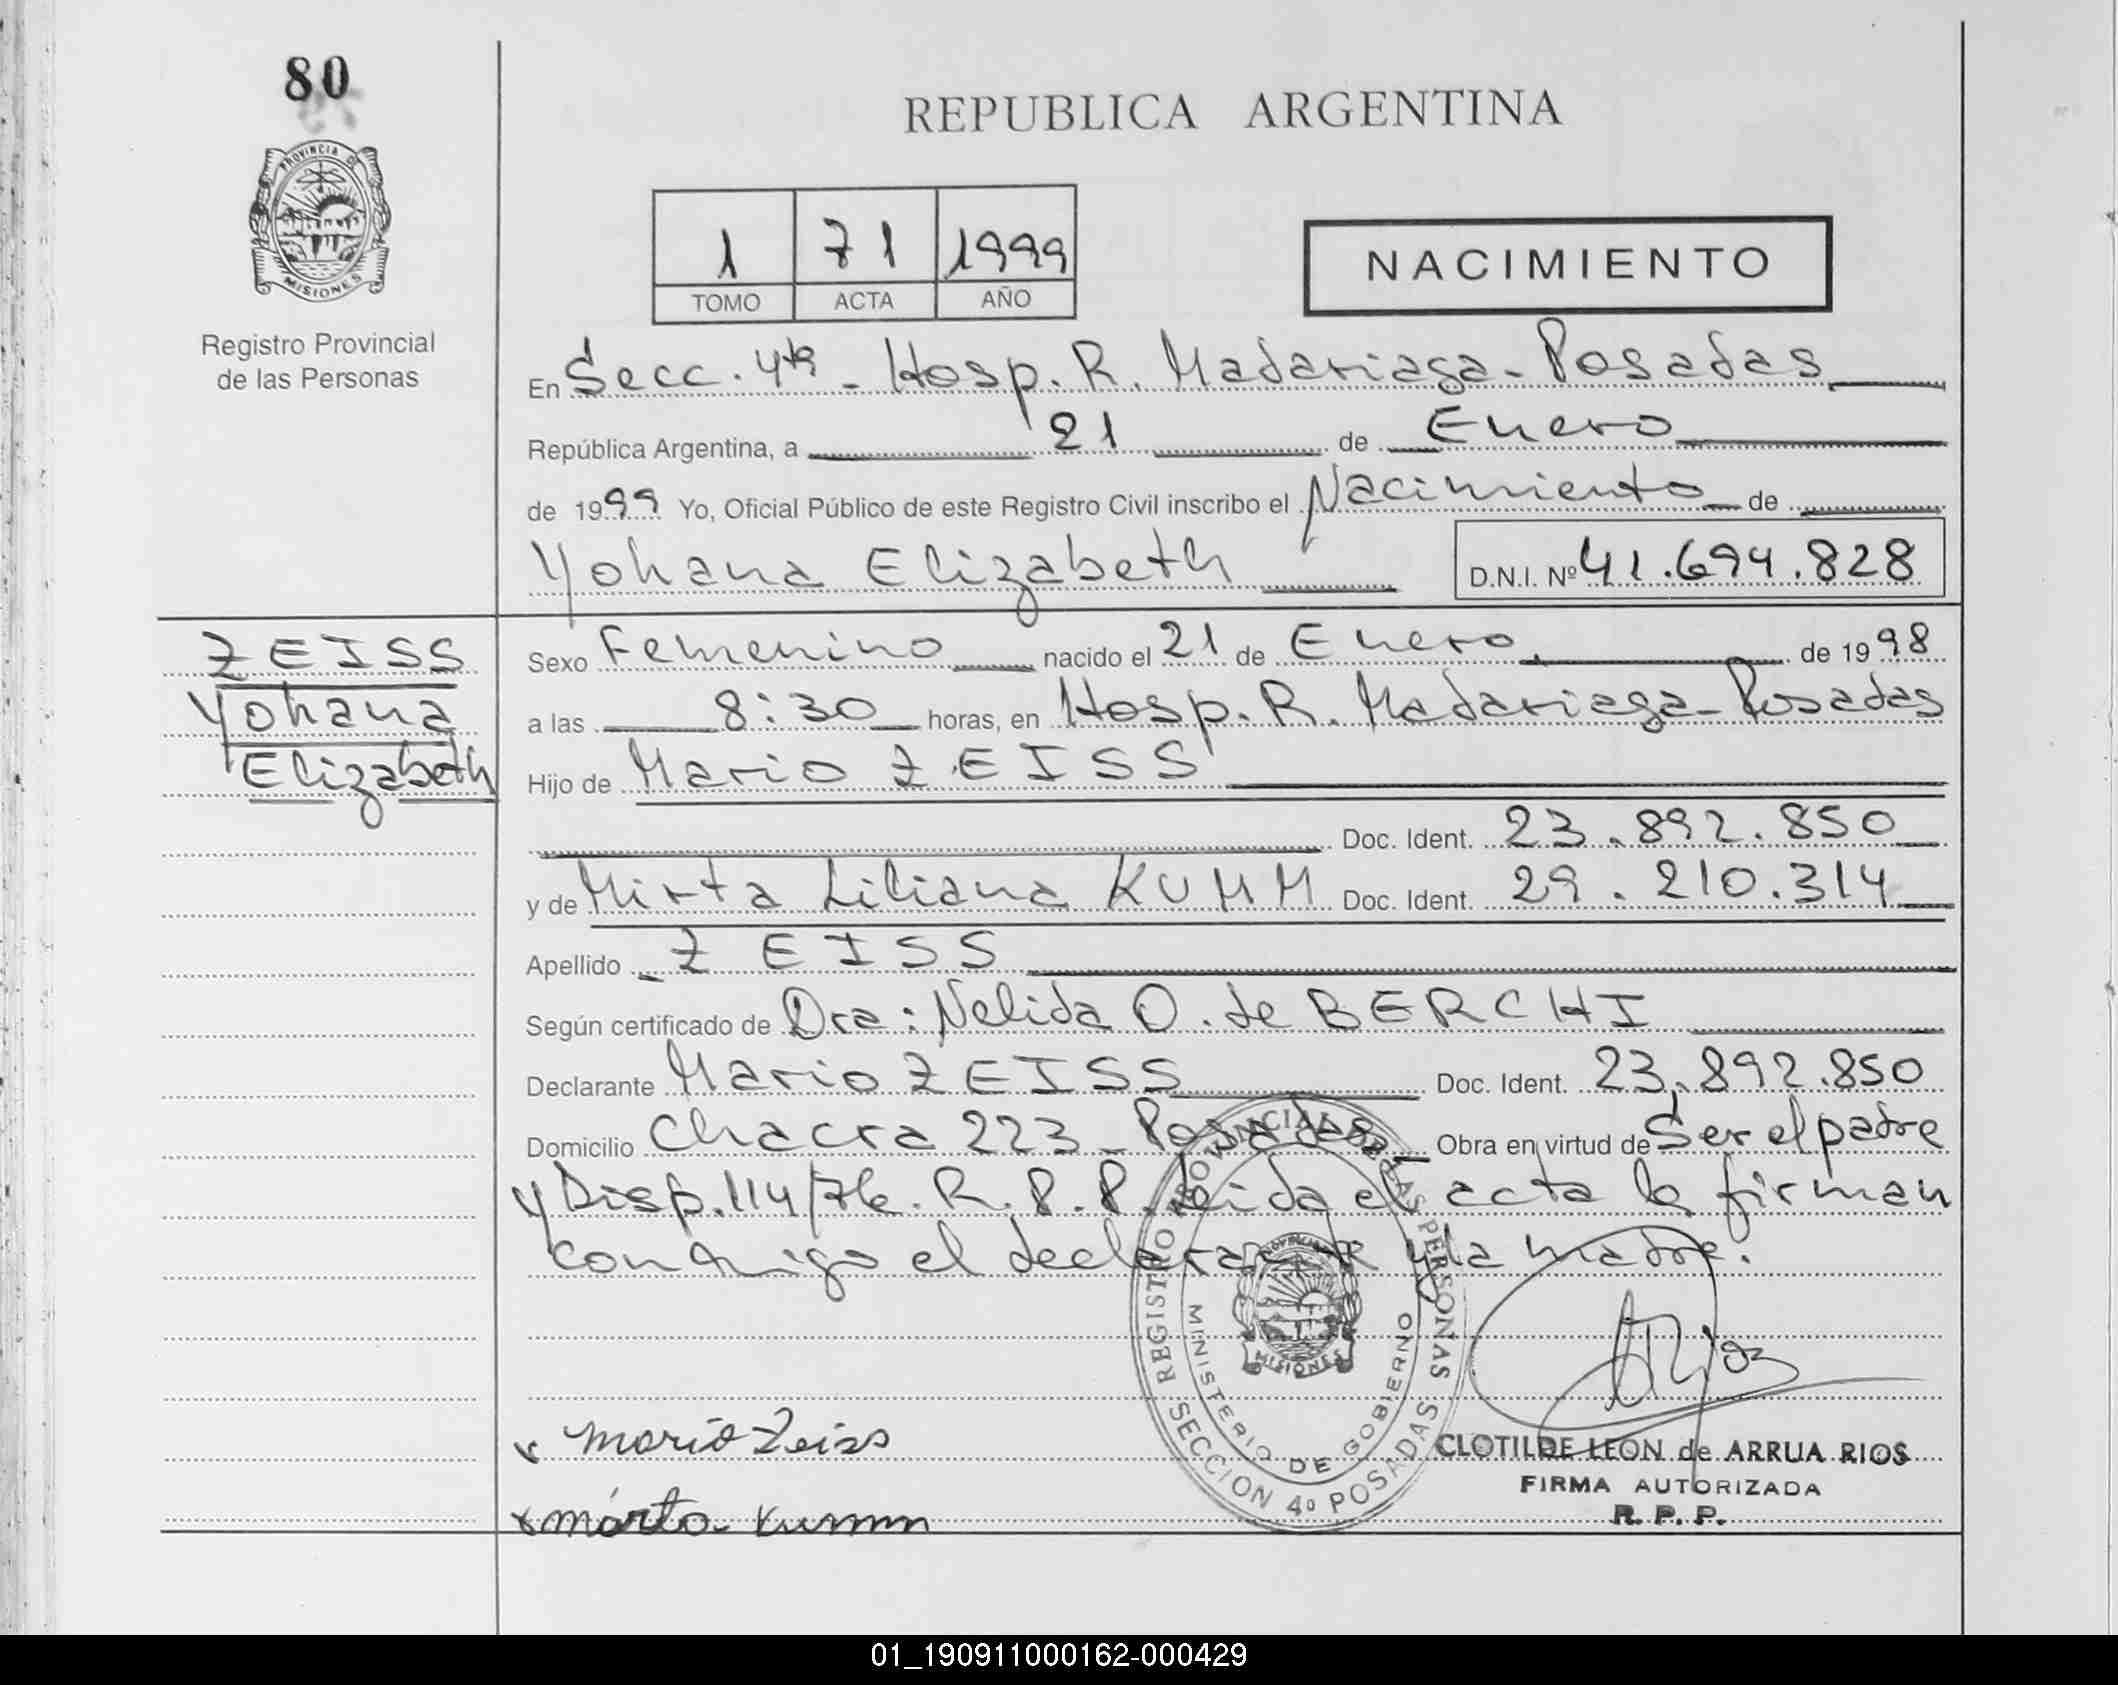 80
PROVINCIA DE
MISIONES
Registro Provincial
de las Personas
REPUBLICA ARGENTINA
1 71 1999
TOMO ACTA AÑO
NACIMIENTO
En Secc. 4ta - Hosp. R. Madariaga - Posadas
República Argentina, a 21 de Enero
de 1999 Yo, Oficial Público de este Registro Civil inscribo el Nacimiento de
Yohana Elizabeth D.N.I. Nº 41.694.828
ZEISS
Yohana
Elizabeth
Sexo Femenino nacido el 21 de Enero de 1998
a las 8:30 horas, en Hosp. R. Madariaga - Posadas
Hijo de Mario ZEISS
Doc. Ident. 23.892.850
y de Mirta Liliana KUMM Doc. Ident. 29.210.314
Apellido ZEISS
Según certificado de Dra: Nelida O. de BERCHI
Declarante Mario ZEISS Doc. Ident. 23.892.850
Domicilio Chacra 223 - Posadas - Obra en virtud de Ser el padre
y Disp. 114/76. R.P.P. Leida el acta la firman
conmigo el declarante y la madre.
REGISTRO PROVINCIAL DE LAS PERSONAS
MINISTERIO DE GOBIERNO
MISIONES
SECCION 4º POSADAS
x Mario Zeiss
CLOTILDE LEON de ARRUA RIOS
FIRMA AUTORIZADA
R. P. P.
x Kumm
01_190911000162-000429